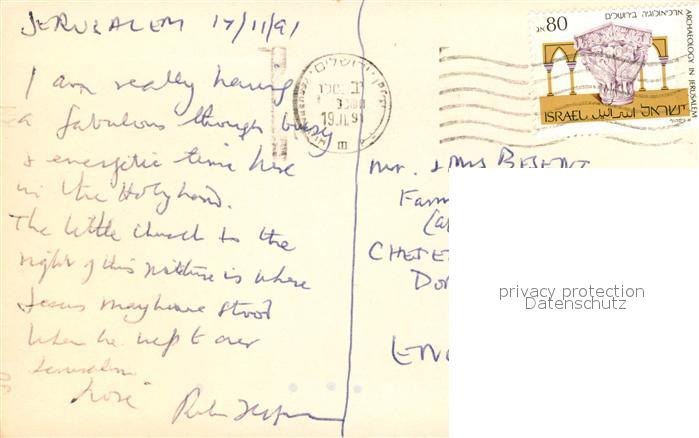 JERUSALEM 17/11/91
I am really having
a fabulous though busy
& energetic time here
in the Holy Land.
The little church to the
right of this picture is where
Jesus may have stood
when he wept over
Jerusalem
Love
Mr. & Mrs BESENT
Farm
CHETE
Do
ENG
80 אג
ארכיאולוגיה בירושלים
ARCHAEOLOGY IN JERUSALEM
ISRAEL اسرائيل ישראל
ירושלים
19.11.91
III
privacy protection
Datenschutz